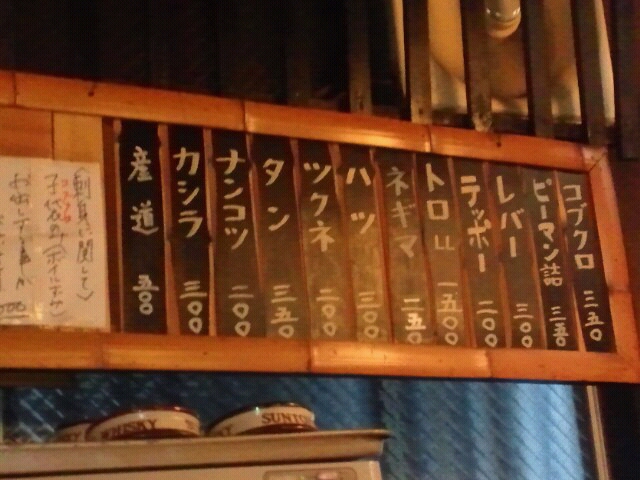 コブクロ 三五〇
ピーマン詰 三五〇
レバー 三〇〇
テッポー 二〇〇
トロ 一五〇〇
ネギマ 一五〇
ハツ 三〇〇
ツクネ 二〇〇
タン 三五〇
ナンコツ 二〇〇
カシラ 三〇〇
産道 五〇
〈刺身に関して〉
WHISKY
SUNTORY
WHISKY